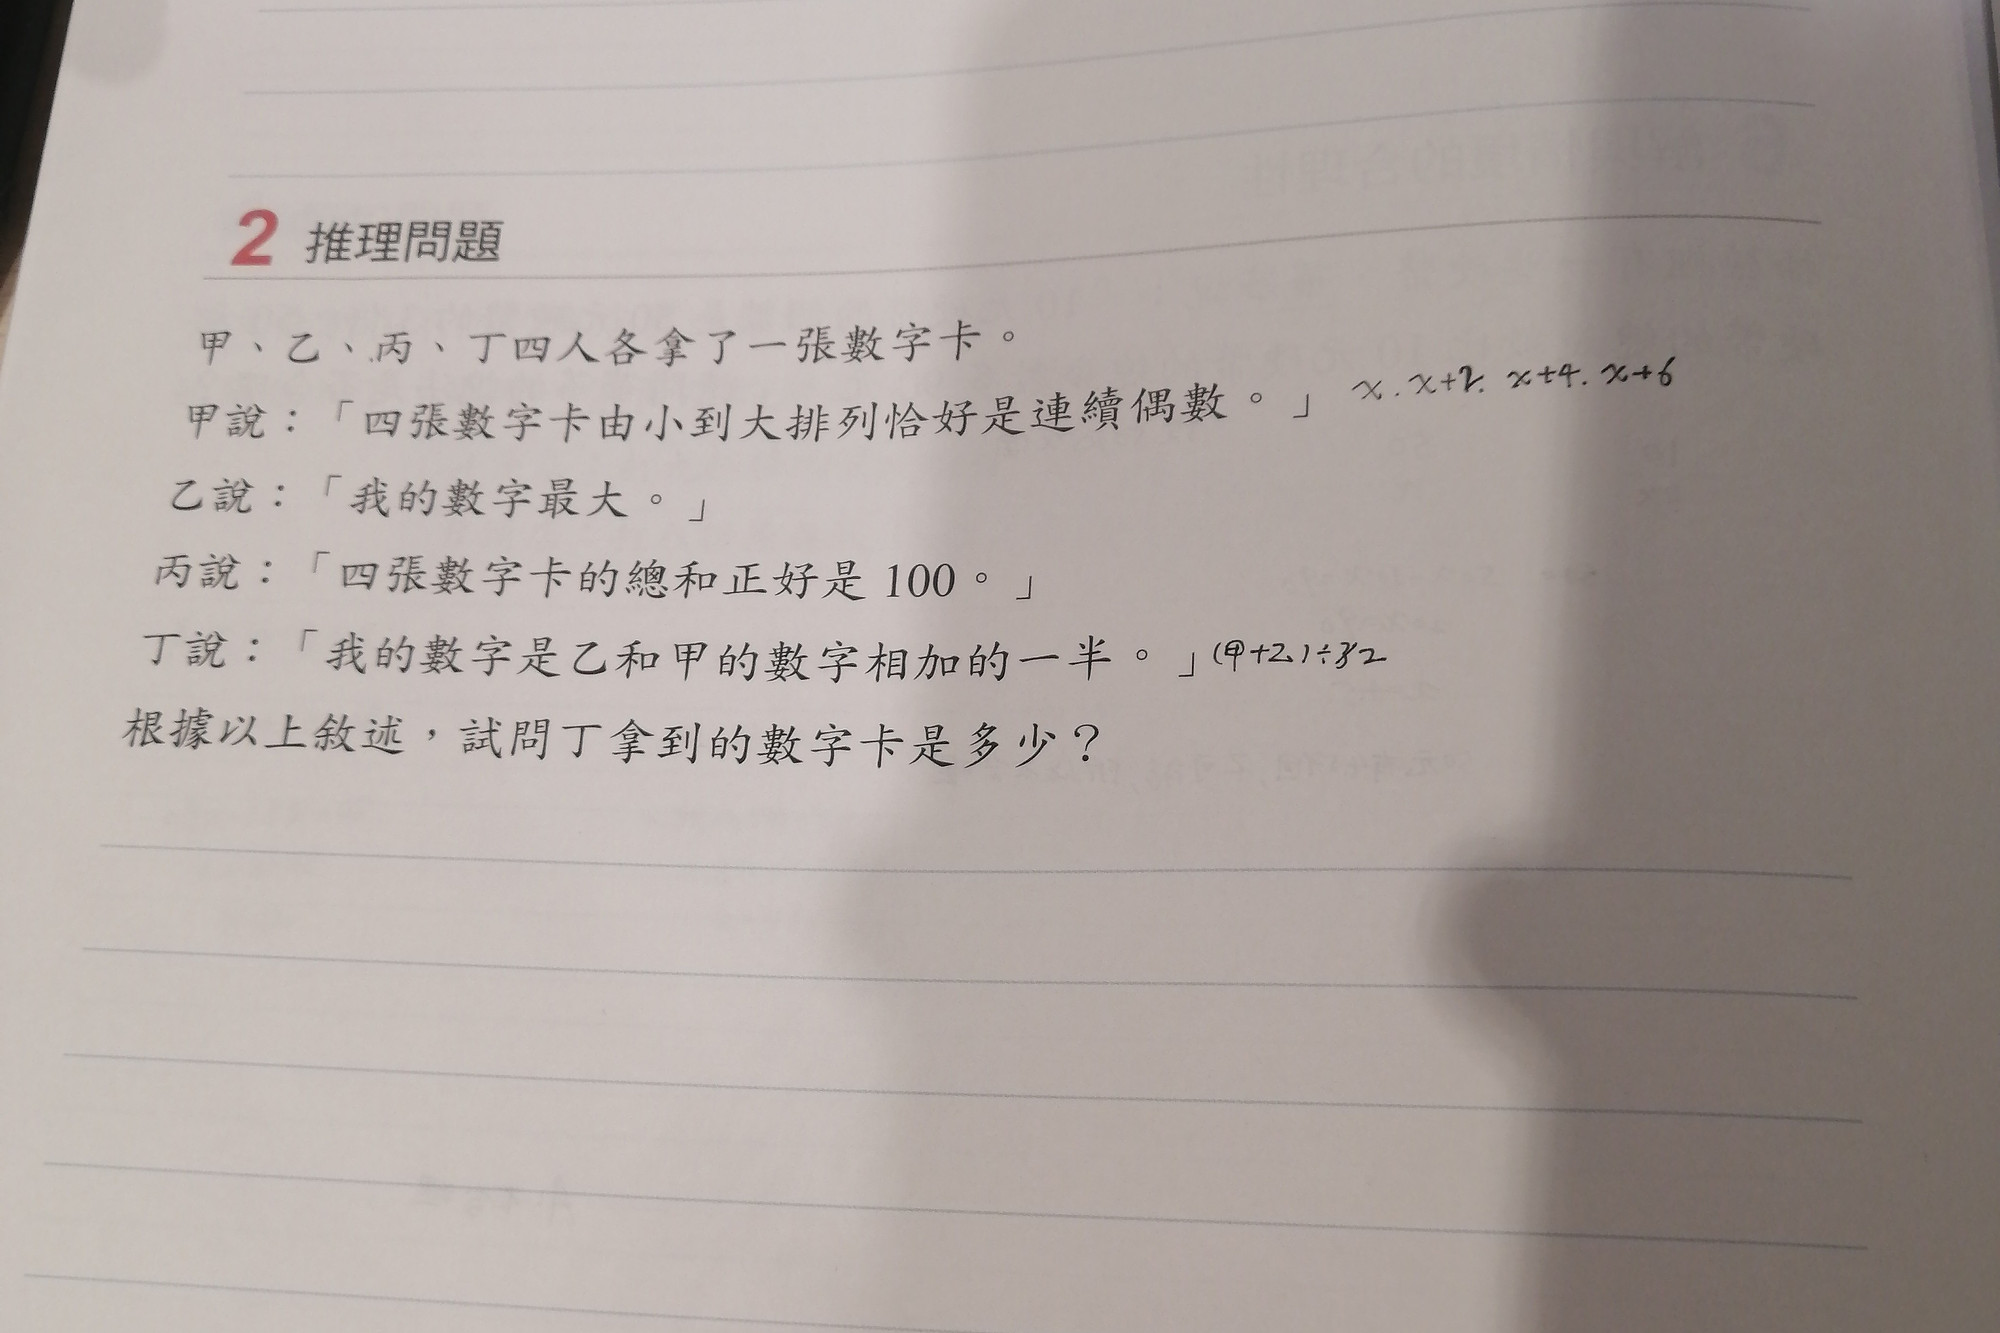 2 推理問題
甲、乙、丙、丁四人各拿了一張數字卡。
甲說：「四張數字卡由小到大排列恰好是連續偶數。」 x. x+2. x+4. x+6
乙說：「我的數字最大。」
丙說：「四張數字卡的總和正好是 100。」
丁說：「我的數字是乙和甲的數字相加的一半。」(甲+乙)÷2
根據以上敘述，試問丁拿到的數字卡是多少？